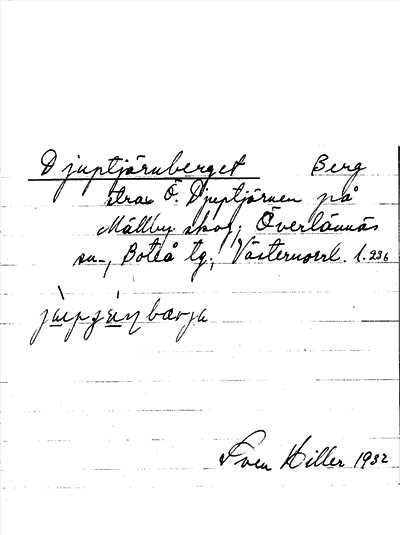 Djuptjärnberget Berg
strax Ö. Djuptjärnen på
Mällby skog, Överlännäs
sn., Boteå tg., Västernorrl. l. 236
Sven Hiller 1932